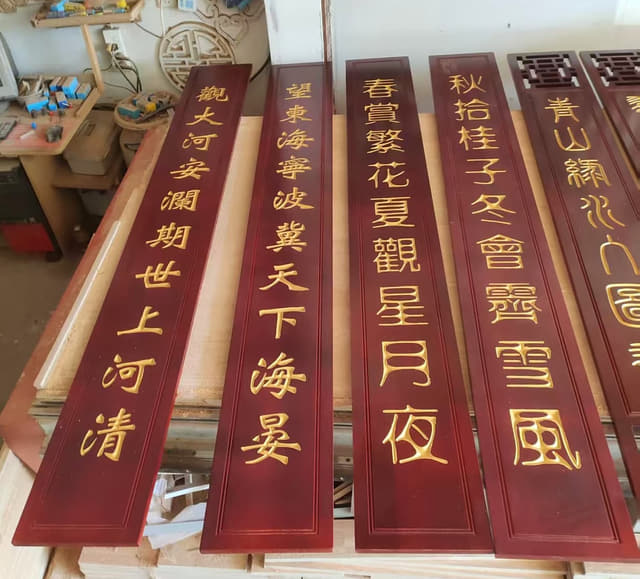 觀大河安瀾期世上河清
望東海寧波冀天下海晏
春賞繁花夏觀星月夜
秋拾桂子冬會霽雪風
青山水入圖